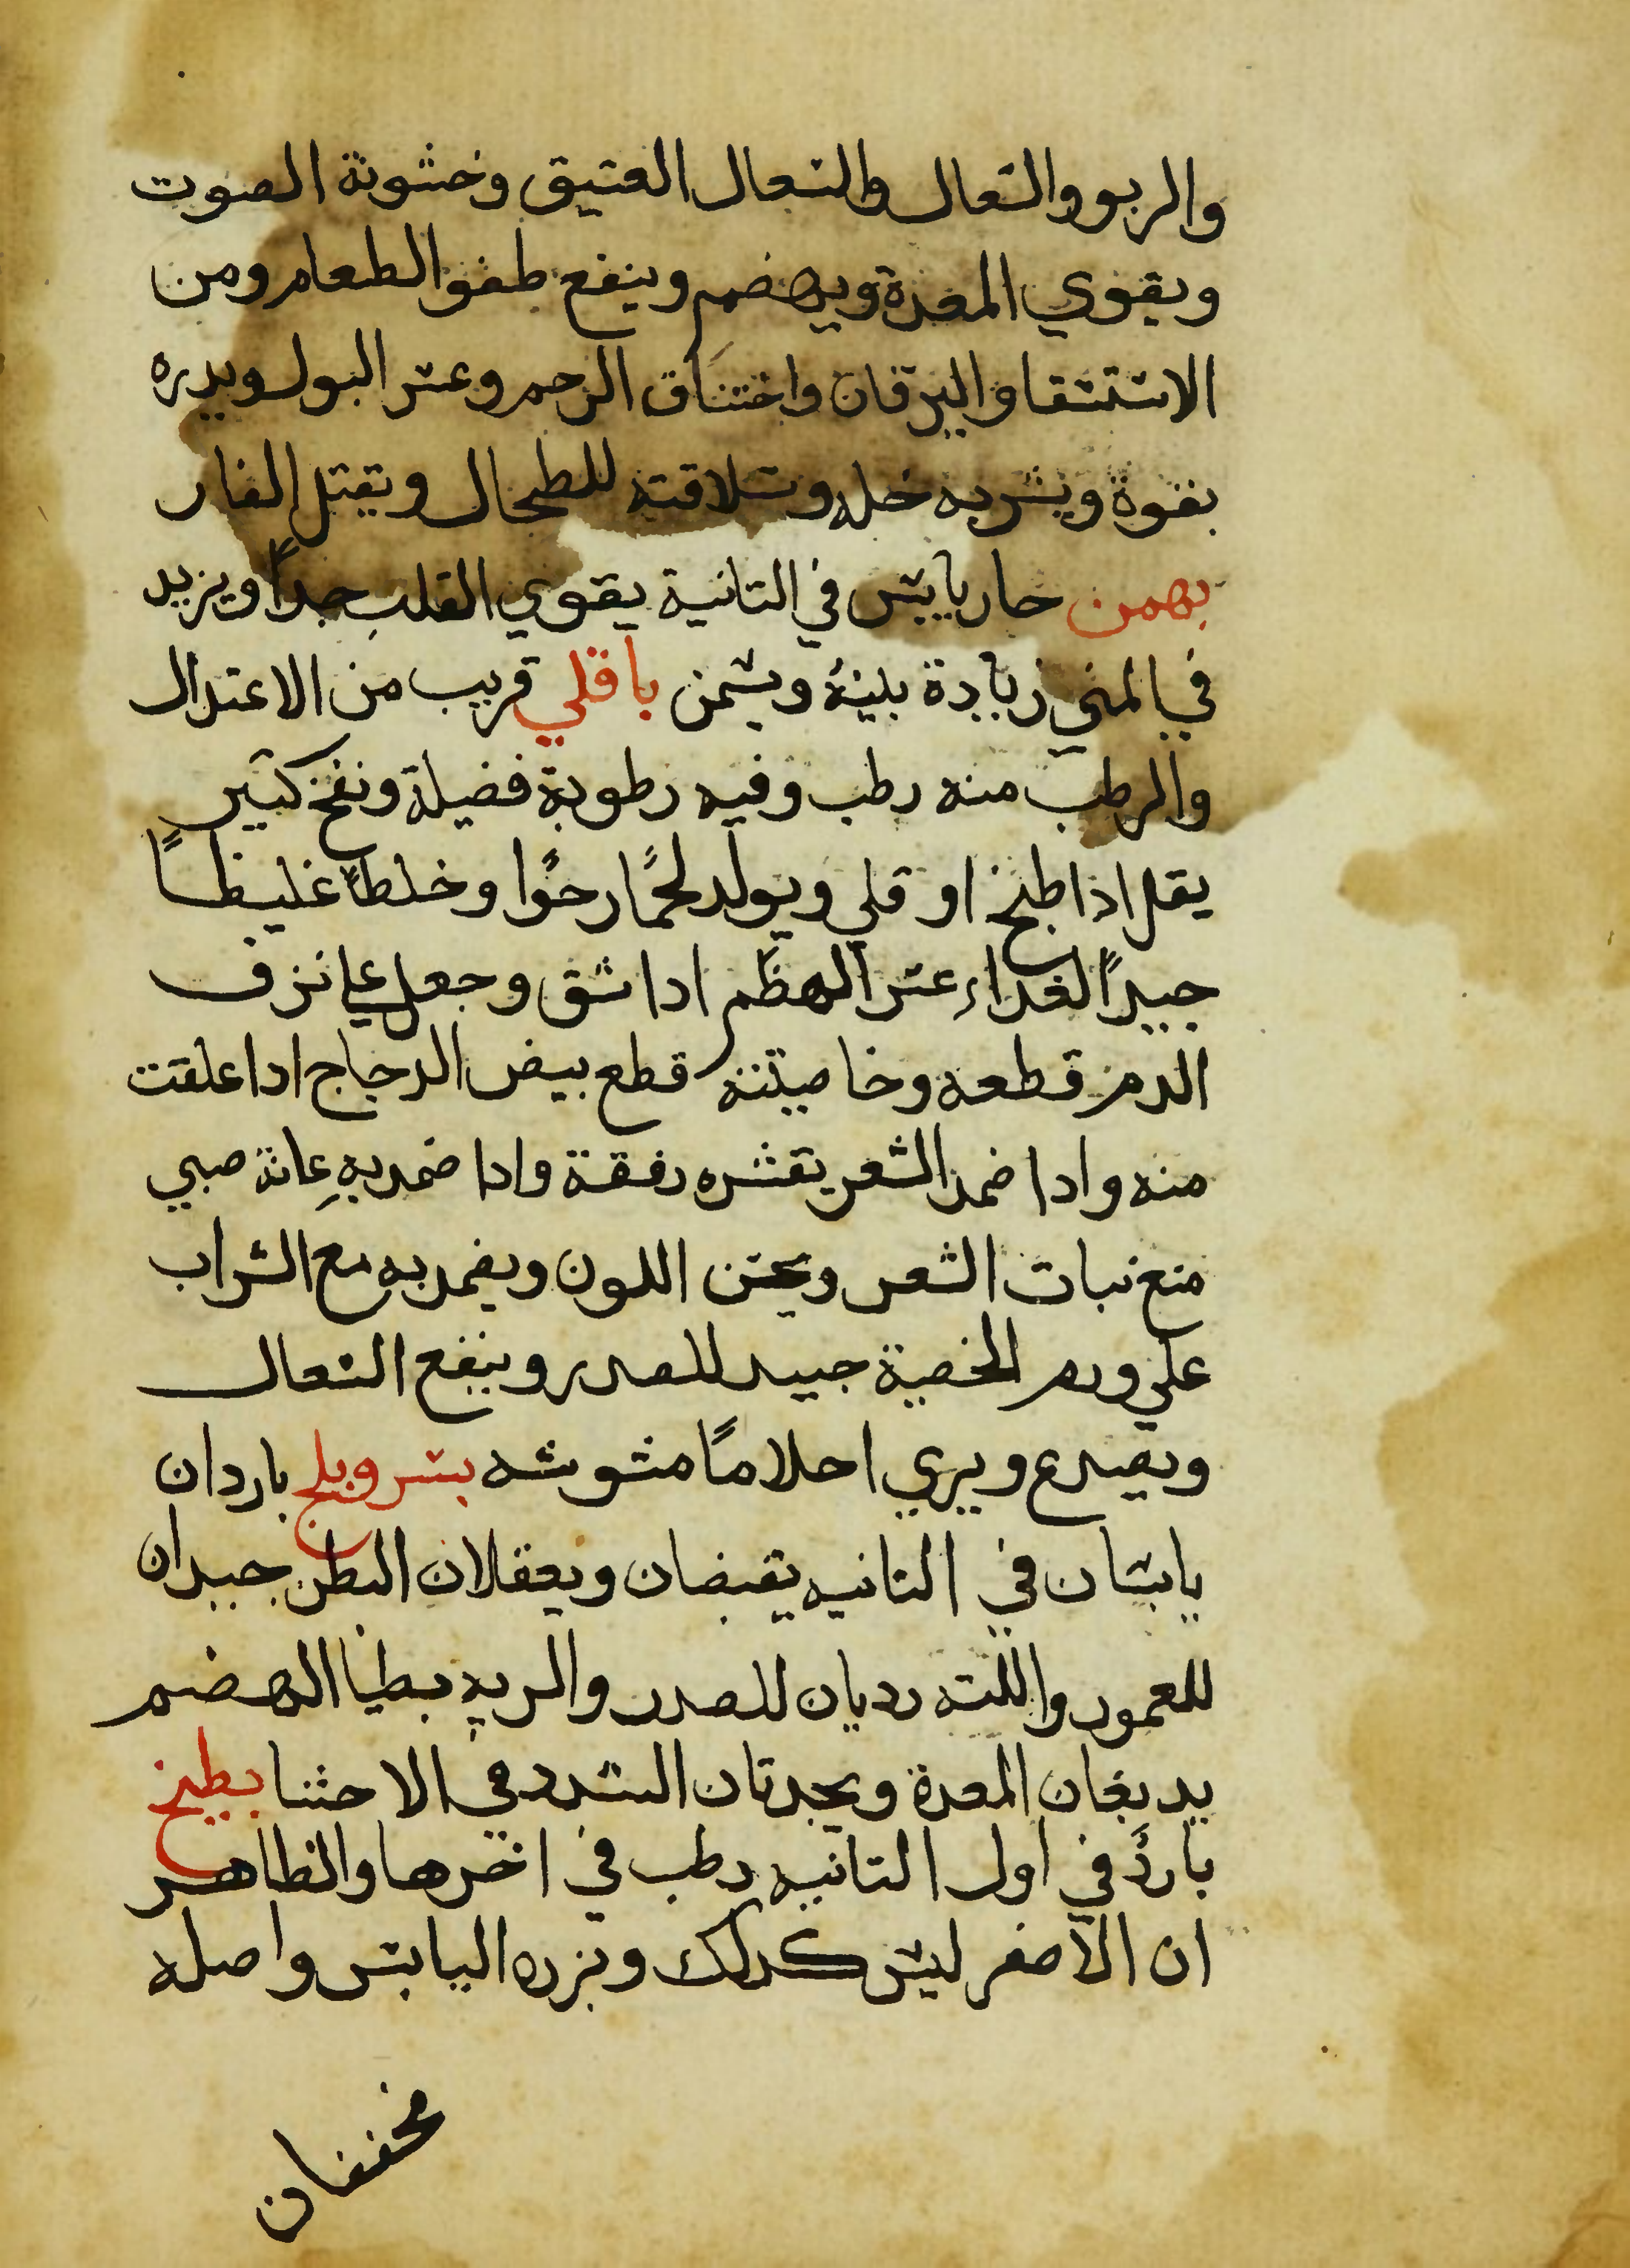 والربو والسعال والسعال العتيق وخشونة الصوت
ويقوي المعدة ويهضم وينفع طفو الطعام ومن
الاستسقا واليرقان واختناق الرحم وعسر البول ويدره
بقوة ويشربه خله وسلاقته للطحال ويقتل الفار
بهمن حار يابس في التانية يقوي القلب جداً ويزيد
في المني زيادة بينة ويسمن باقلي قريب من الاعتدال
والرطب منه رطب وفيه رطوبة فضيلة ونفخ كتير
يقل اذا طبخ او قلي ويولد لحمًا رخوًا وخلطاً غليظاً
جيداً لغداء عسر الهظم ادا شق وجعل علي نزف
الدم قطعه وخاصيته قطع بيض الدجاج ادا علقت
منه وادا ضمد الشعر بقشره رققة وادا ضمد به عانة صبي
منع نبات الشعر ويحسن اللون ويضمد به مع الشراب
علي ورم الخصية جييد للصدر وينفع السعال
ويصدع ويري احلامًا مشوشه بسر وبلح باردان
يابسان في التانيه يقبضان ويعقلان البطن جيدان
للعمور واللته رديان للصدر والريه بطيا الهضم
يدبغان المعدة ويحدتان السدد في الاحشا بطيخ
باردٌ في اول التانيه رطب في اخرها والظاهر
ان الاصفر ليس كدلك وبزره اليابس واصله
مخففان